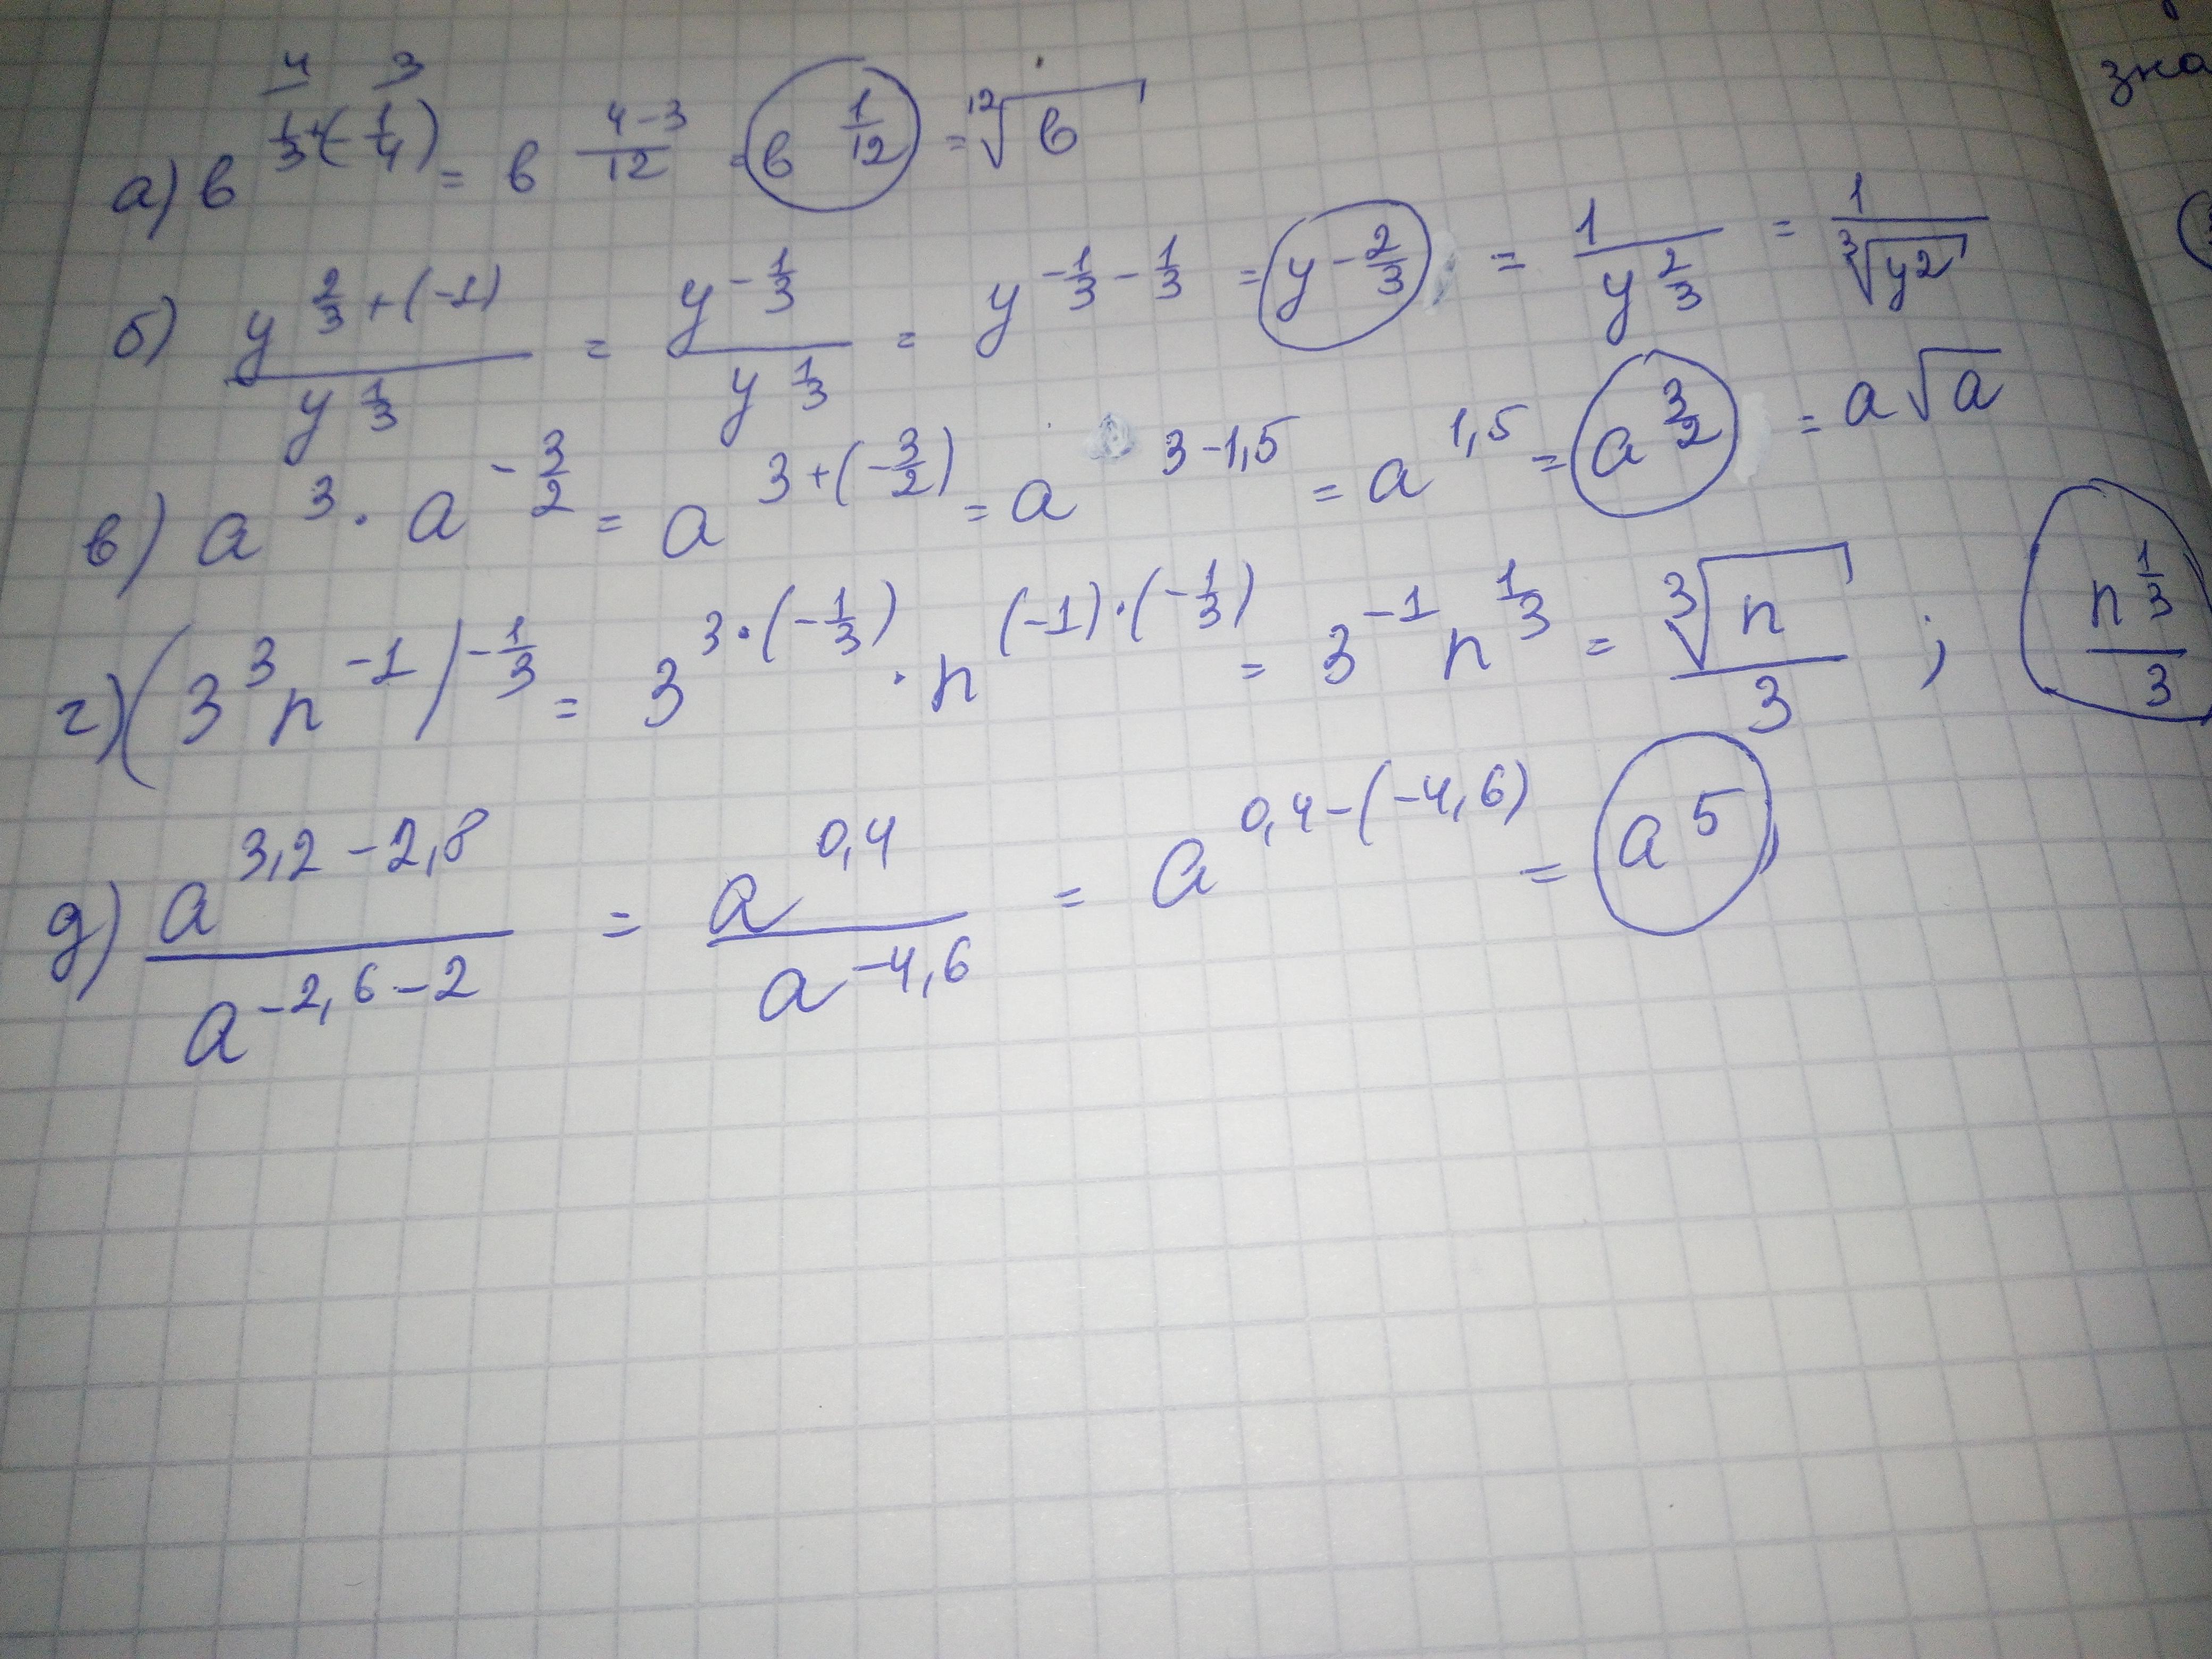 зна
а) в^(1/3+(-1/4)) = в^((4-3)/12) = в^(1/12) = ¹²√в
б) y^(2/3+(-1))/y^(1/3) = y^(-1/3)/y^(1/3) = y^(-1/3-1/3) = y^(-2/3) = 1/y^(2/3) = 1/³√y2
в) a^3 · a^(-3/2) = a^(3+(-3/2)) = a^(3-1,5) = a^(1,5) = a^(3/2) = a√a
г) (3^3 n^(-1))^(-1/3) = 3^(3·(-1/3)) · n^((-1)·(-1/3)) = 3^(-1) n^(1/3) = ³√n/3 ; n^(1/3)/3
д) a^(3,2-2,8)/a^(-2,6-2) = a^(0,4)/a^(-4,6) = a^(0,4-(-4,6)) = a^5